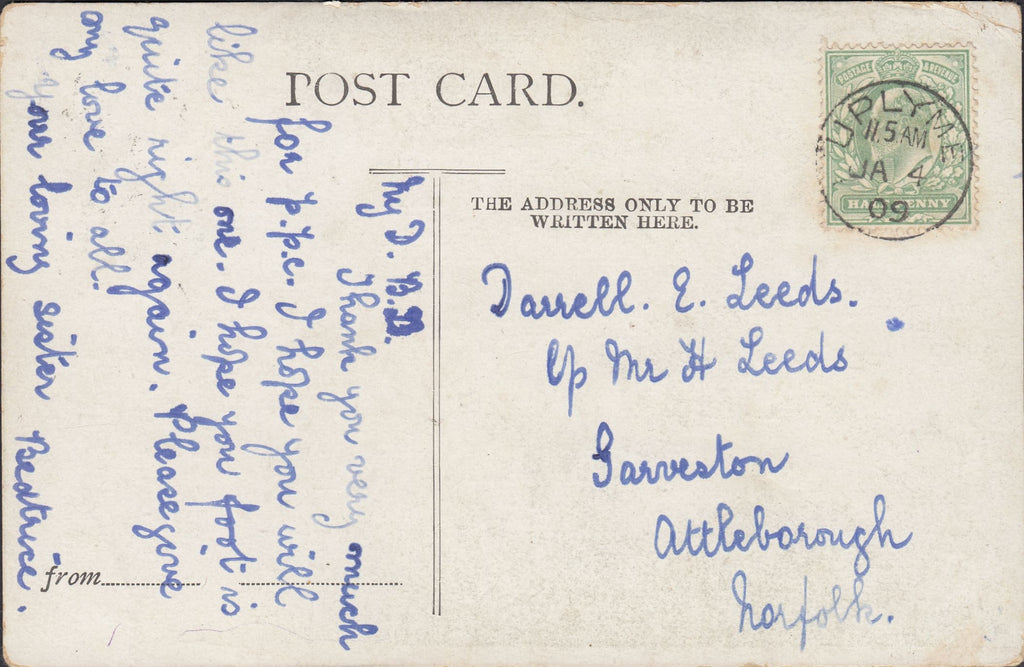 POST CARD.
THE ADDRESS ONLY TO BE
WRITTEN HERE.
POSTAGE REVENUE
HALFPENNY
UPLYME
11.5 AM
JA 4
09
My D. B.D.
Thank you very much
for p.p.c. I hope you will
like this one. I hope you foot is
quite right again. Please give
my love to all.
your loving sister Beatrice.
from
Darrell. E. Leeds.
c/o Mr H Leeds
Garveston
Attleborough
Norfolk.